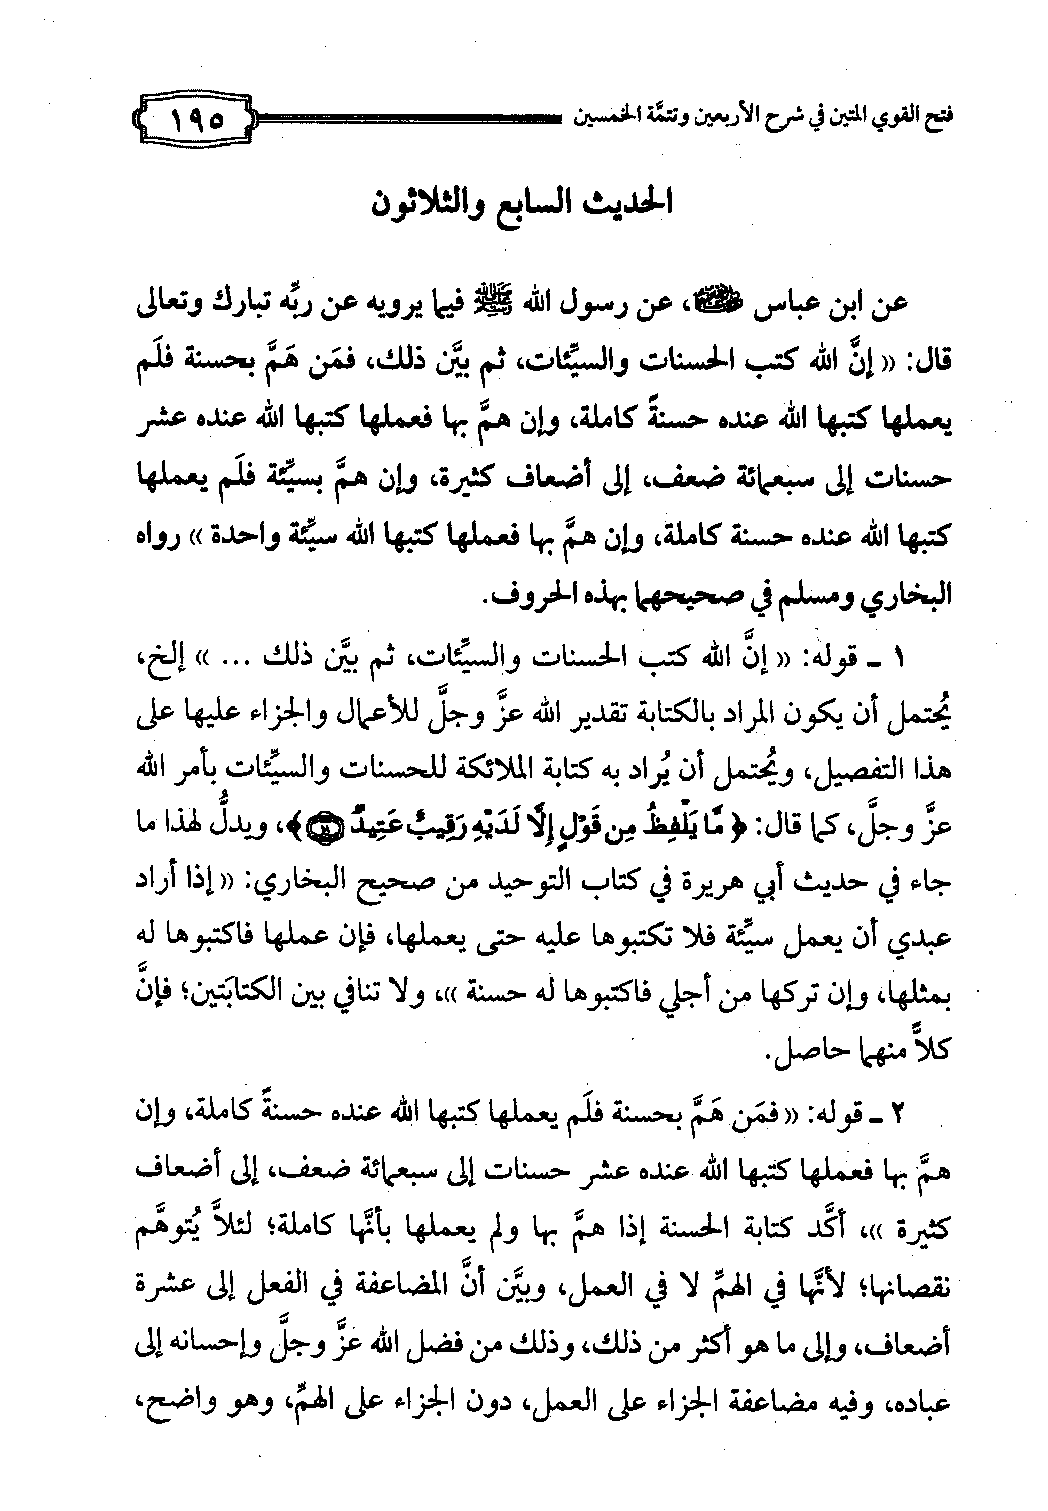 فتح القوي المتين في شرح الأربعين وتتمَّة الخمسين
١٩٥
الحديث السابع والثلاثون
عن ابن عباس رضي الله عنهما، عن رسول الله ﷺ فيما يرويه عن ربِّه تبارك وتعالى
قال: «إنَّ الله كتب الحسنات والسيِّئات، ثم بيَّن ذلك، فمَن هَمَّ بحسنة فلَم
يعملها كتبها الله عنده حسنةً كاملة، وإن همَّ بها فعملها كتبها الله عنده عشر
حسنات إلى سبعمائة ضعف، إلى أضعاف كثيرة، وإن همَّ بسيِّئة فلَم يعملها
كتبها الله عنده حسنة كاملة، وإن همَّ بها فعملها كتبها الله سيِّئة واحدة» رواه
البخاري ومسلم في صحيحهما بهذه الحروف.
١ ـ قوله: «إنَّ الله كتب الحسنات والسيِّئات، ثم بيَّن ذلك ...» إلخ،
يُحتمل أن يكون المراد بالكتابة تقدير الله عزَّ وجلَّ للأعمال والجزاء عليها على
هذا التفصيل، ويُحتمل أن يُراد به كتابة الملائكة للحسنات والسيِّئات بأمر الله
عزَّ وجلَّ، كما قال: ﴿مَّا يَلْفِظُ مِن قَوْلٍ إِلَّا لَدَيْهِ رَقِيبٌ عَتِيدٌ ١٨﴾، ويدلُّ لهذا ما
جاء في حديث أبي هريرة في كتاب التوحيد من صحيح البخاري: «إذا أراد
عبدي أن يعمل سيِّئة فلا تكتبوها عليه حتى يعملها، فإن عملها فاكتبوها له
بمثلها، وإن تركها من أجلي فاكتبوها له حسنة»، ولا تنافي بين الكتابَتين؛ فإنَّ
كلاًّ منهما حاصل.
٢ ـ قوله: «فمَن هَمَّ بحسنة فلَم يعملها كتبها الله عنده حسنةً كاملة، وإن
همَّ بها فعملها كتبها الله عنده عشر حسنات إلى سبعمائة ضعف، إلى أضعاف
كثيرة»، أكَّد كتابة الحسنة إذا همَّ بها ولم يعملها بأنَّها كاملة؛ لئلاَّ يُتوهَّم
نقصانها؛ لأنَّها في الهمِّ لا في العمل، وبيَّن أنَّ المضاعفة في الفعل إلى عشرة
أضعاف، وإلى ما هو أكثر من ذلك، وذلك من فضل الله عزَّ وجلَّ وإحسانه إلى
عباده، وفيه مضاعفة الجزاء على العمل، دون الجزاء على الهمِّ، وهو واضح،